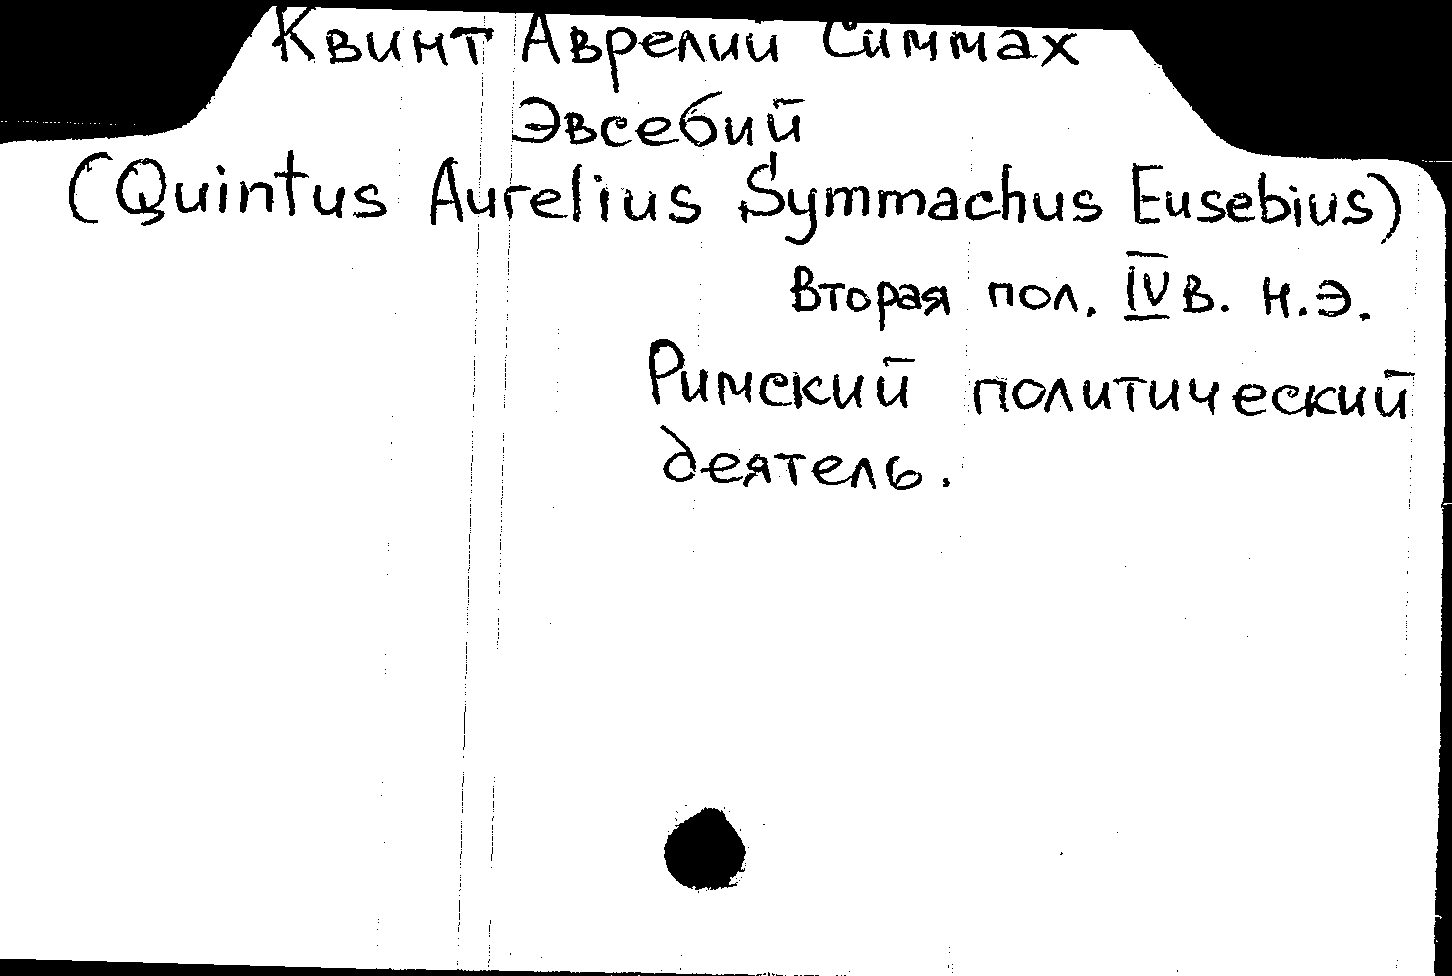 Квинт Аврелий Симмах
Эвсебий
(Quintus Aurelius Symmachus Eusebius)
Вторая пол. IV в. н.э.
Римский политический
деятель.